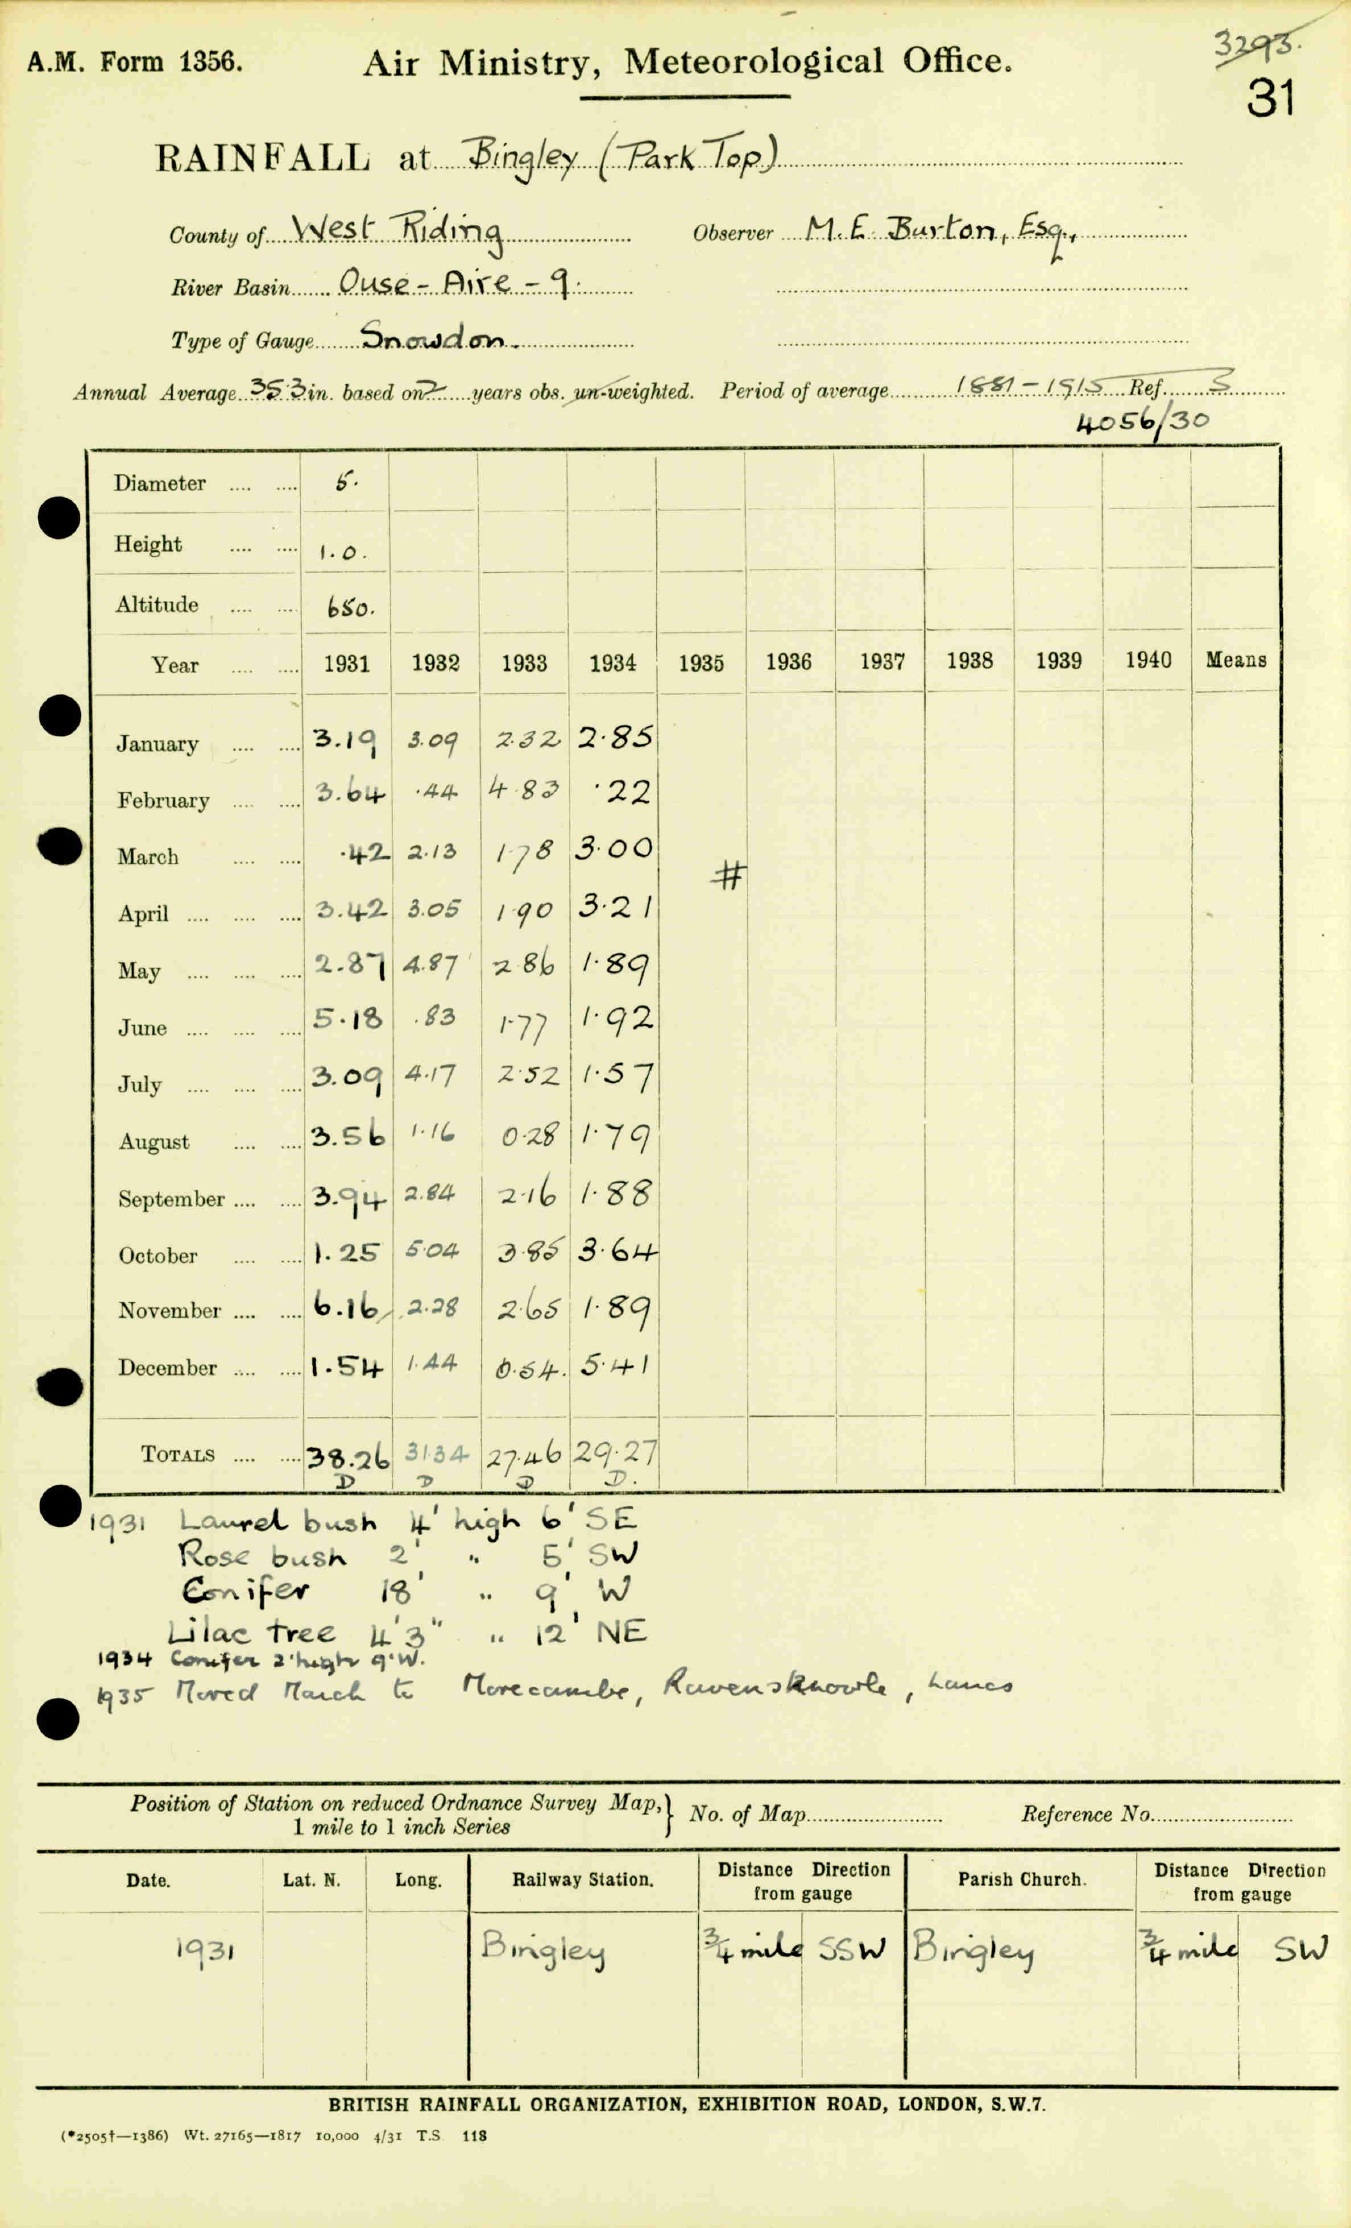 3293.
A.M. Form 1356. Air Ministry, Meteorological Office.
31
RAINFALL at Bingley (Park Top)
County of West Riding Observer M. E. Burton, Esq.,
River Basin Ouse - Aire - 9.
Type of Gauge Snowdon.
Annual Average 35.3 in. based on 2 years obs. un-weighted. Period of average 1881-1915 Ref. 3
4056/30
Diameter 5.
Height 1.0.
Altitude 650.
Year 1931 1932 1933 1934 1935 1936 1937 1938 1939 1940 Means
January 3.19 3.09 2.32 2.85
February 3.64 .44 4.83 .22
March .42 2.13 1.78 3.00
#
April 3.42 3.05 1.90 3.21
May 2.87 4.87 2.86 1.89
June 5.18 .83 1.77 1.92
July 3.09 4.17 2.52 1.57
August 3.56 1.16 0.28 1.79
September 3.94 2.84 2.16 1.88
October 1.25 5.04 3.85 3.64
November 6.16 2.28 2.65 1.89
December 1.54 1.44 0.54. 5.41
TOTALS 38.26 31.34 27.46 29.27
D D D D.
1931 Laurel bush 4' high 6' SE
Rose bush 2' " 5' SW
Conifer 18' " 9' W
Lilac tree 4'3" " 12' NE
1934 Conifer 2' high 9' W.
1935 Moved March to Morecambe, Ravensknowle, Lancs
Position of Station on reduced Ordnance Survey Map, } No. of Map Reference No.
1 mile to 1 inch Series
Date. Lat. N. Long. Railway Station. Distance Direction from gauge Parish Church. Distance Direction from gauge
1931 Bingley 3/4 mile SSW Bingley 3/4 mile SW
BRITISH RAINFALL ORGANIZATION, EXHIBITION ROAD, LONDON, S.W.7.
(*2505†—1386) Wt. 27165—1817 10,000 4/31 T.S. 118